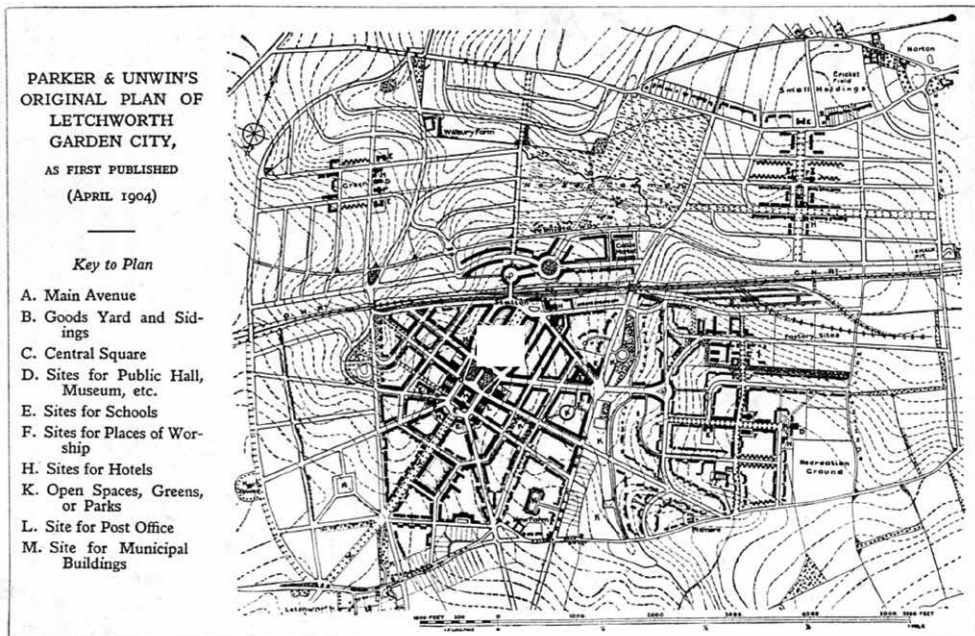 PARKER & UNWIN'S
ORIGINAL PLAN OF
LETCHWORTH
GARDEN CITY,
AS FIRST PUBLISHED
(APRIL 1904)
Key to Plan
A. Main Avenue
B. Goods Yard and Sid-
ings
C. Central Square
D. Sites for Public Hall,
Museum, etc.
E. Sites for Schools
F. Sites for Places of Wor-
ship
H. Sites for Hotels
K. Open Spaces, Greens,
or Parks
L. Site for Post Office
M. Site for Municipal
Buildings
Norton
Cricket
Field
Small Holdings
Wilbury Farm
Norton Common
Station
Factory Sites
Recreation
Ground
Letchworth
1000 FEET 500 0 1000 2000 3000 4000 5000
1 MILE